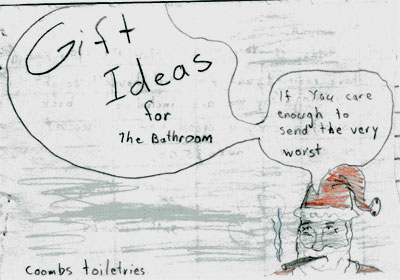 Gift
Ideas
for
The Bathroom
If you care
enough to
send the very
worst
Coombs toiletries